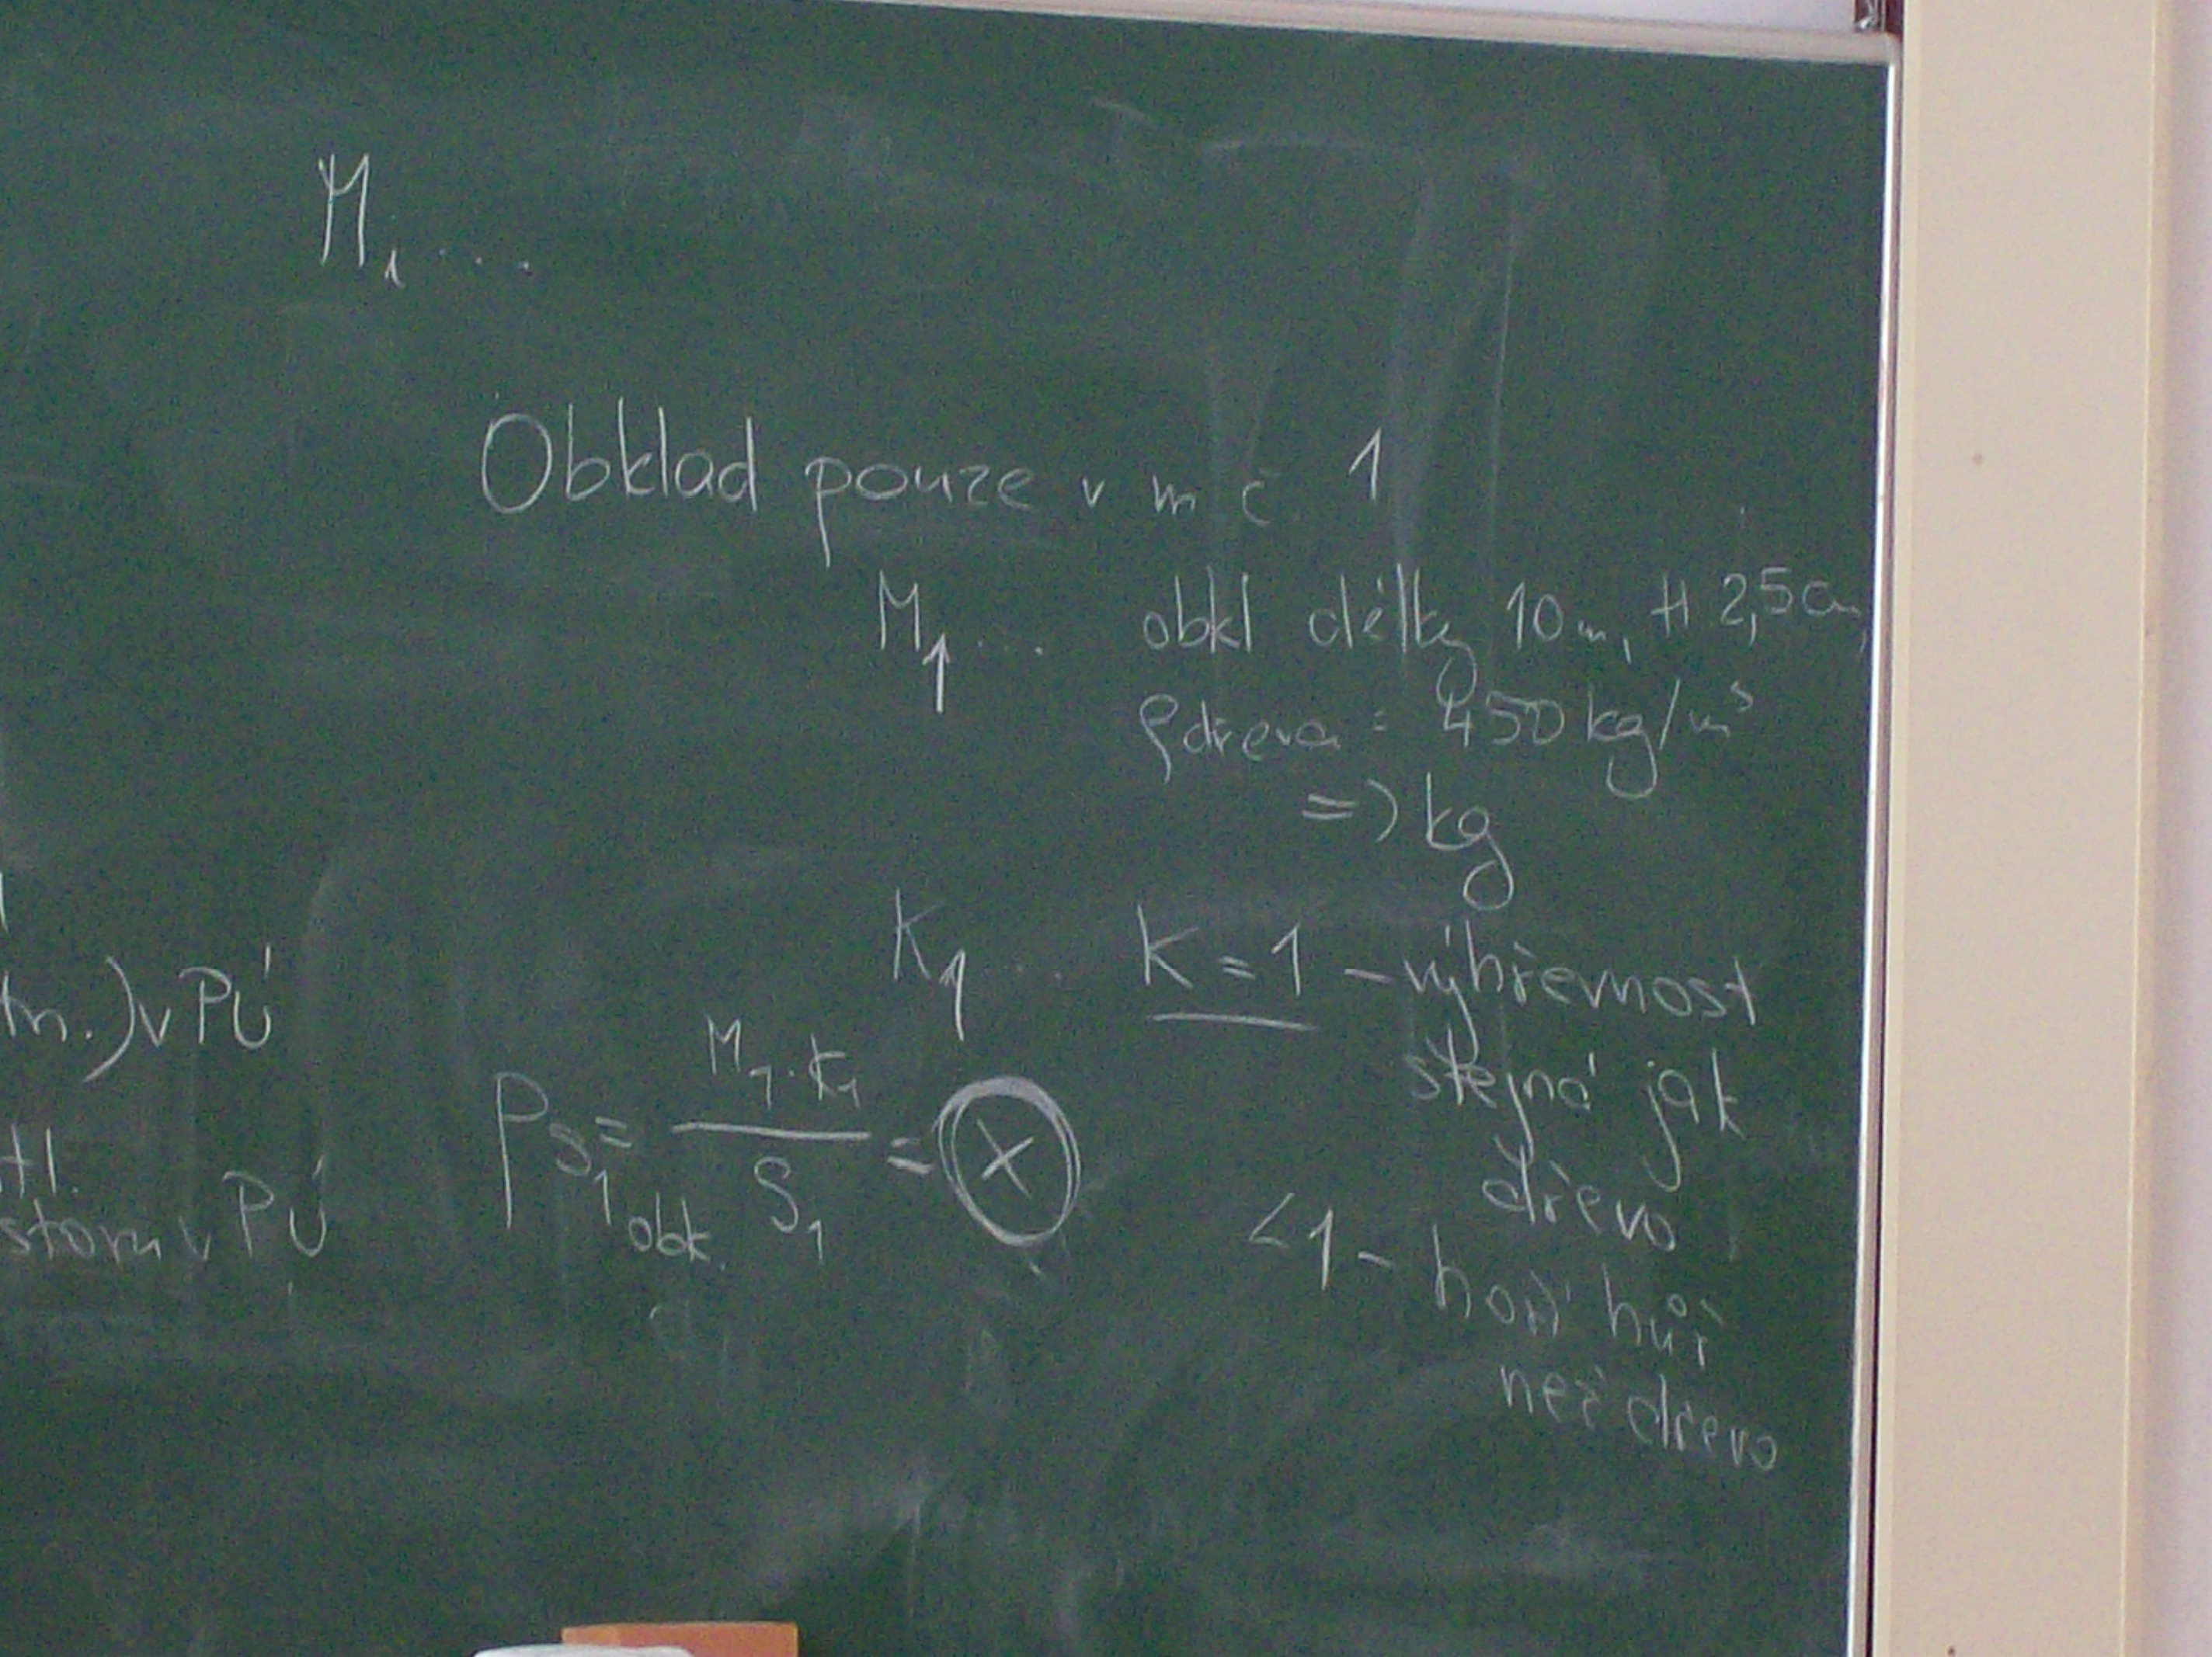 M₁ ...
Obklad pouze v m č. 1
M₁ ... obkl délky 10m, tl 2,5cm,
ρdřeva = 450 kg/m³
=> kg
K₁ ... K = 1 – výhřevnost
stejná jak
dřevo
< 1 – hoří hůř
než dřevo
Ps₁ obk. = M₁·k₁ / S₁ = X
m.) v PÚ
tl.
storu v PÚ